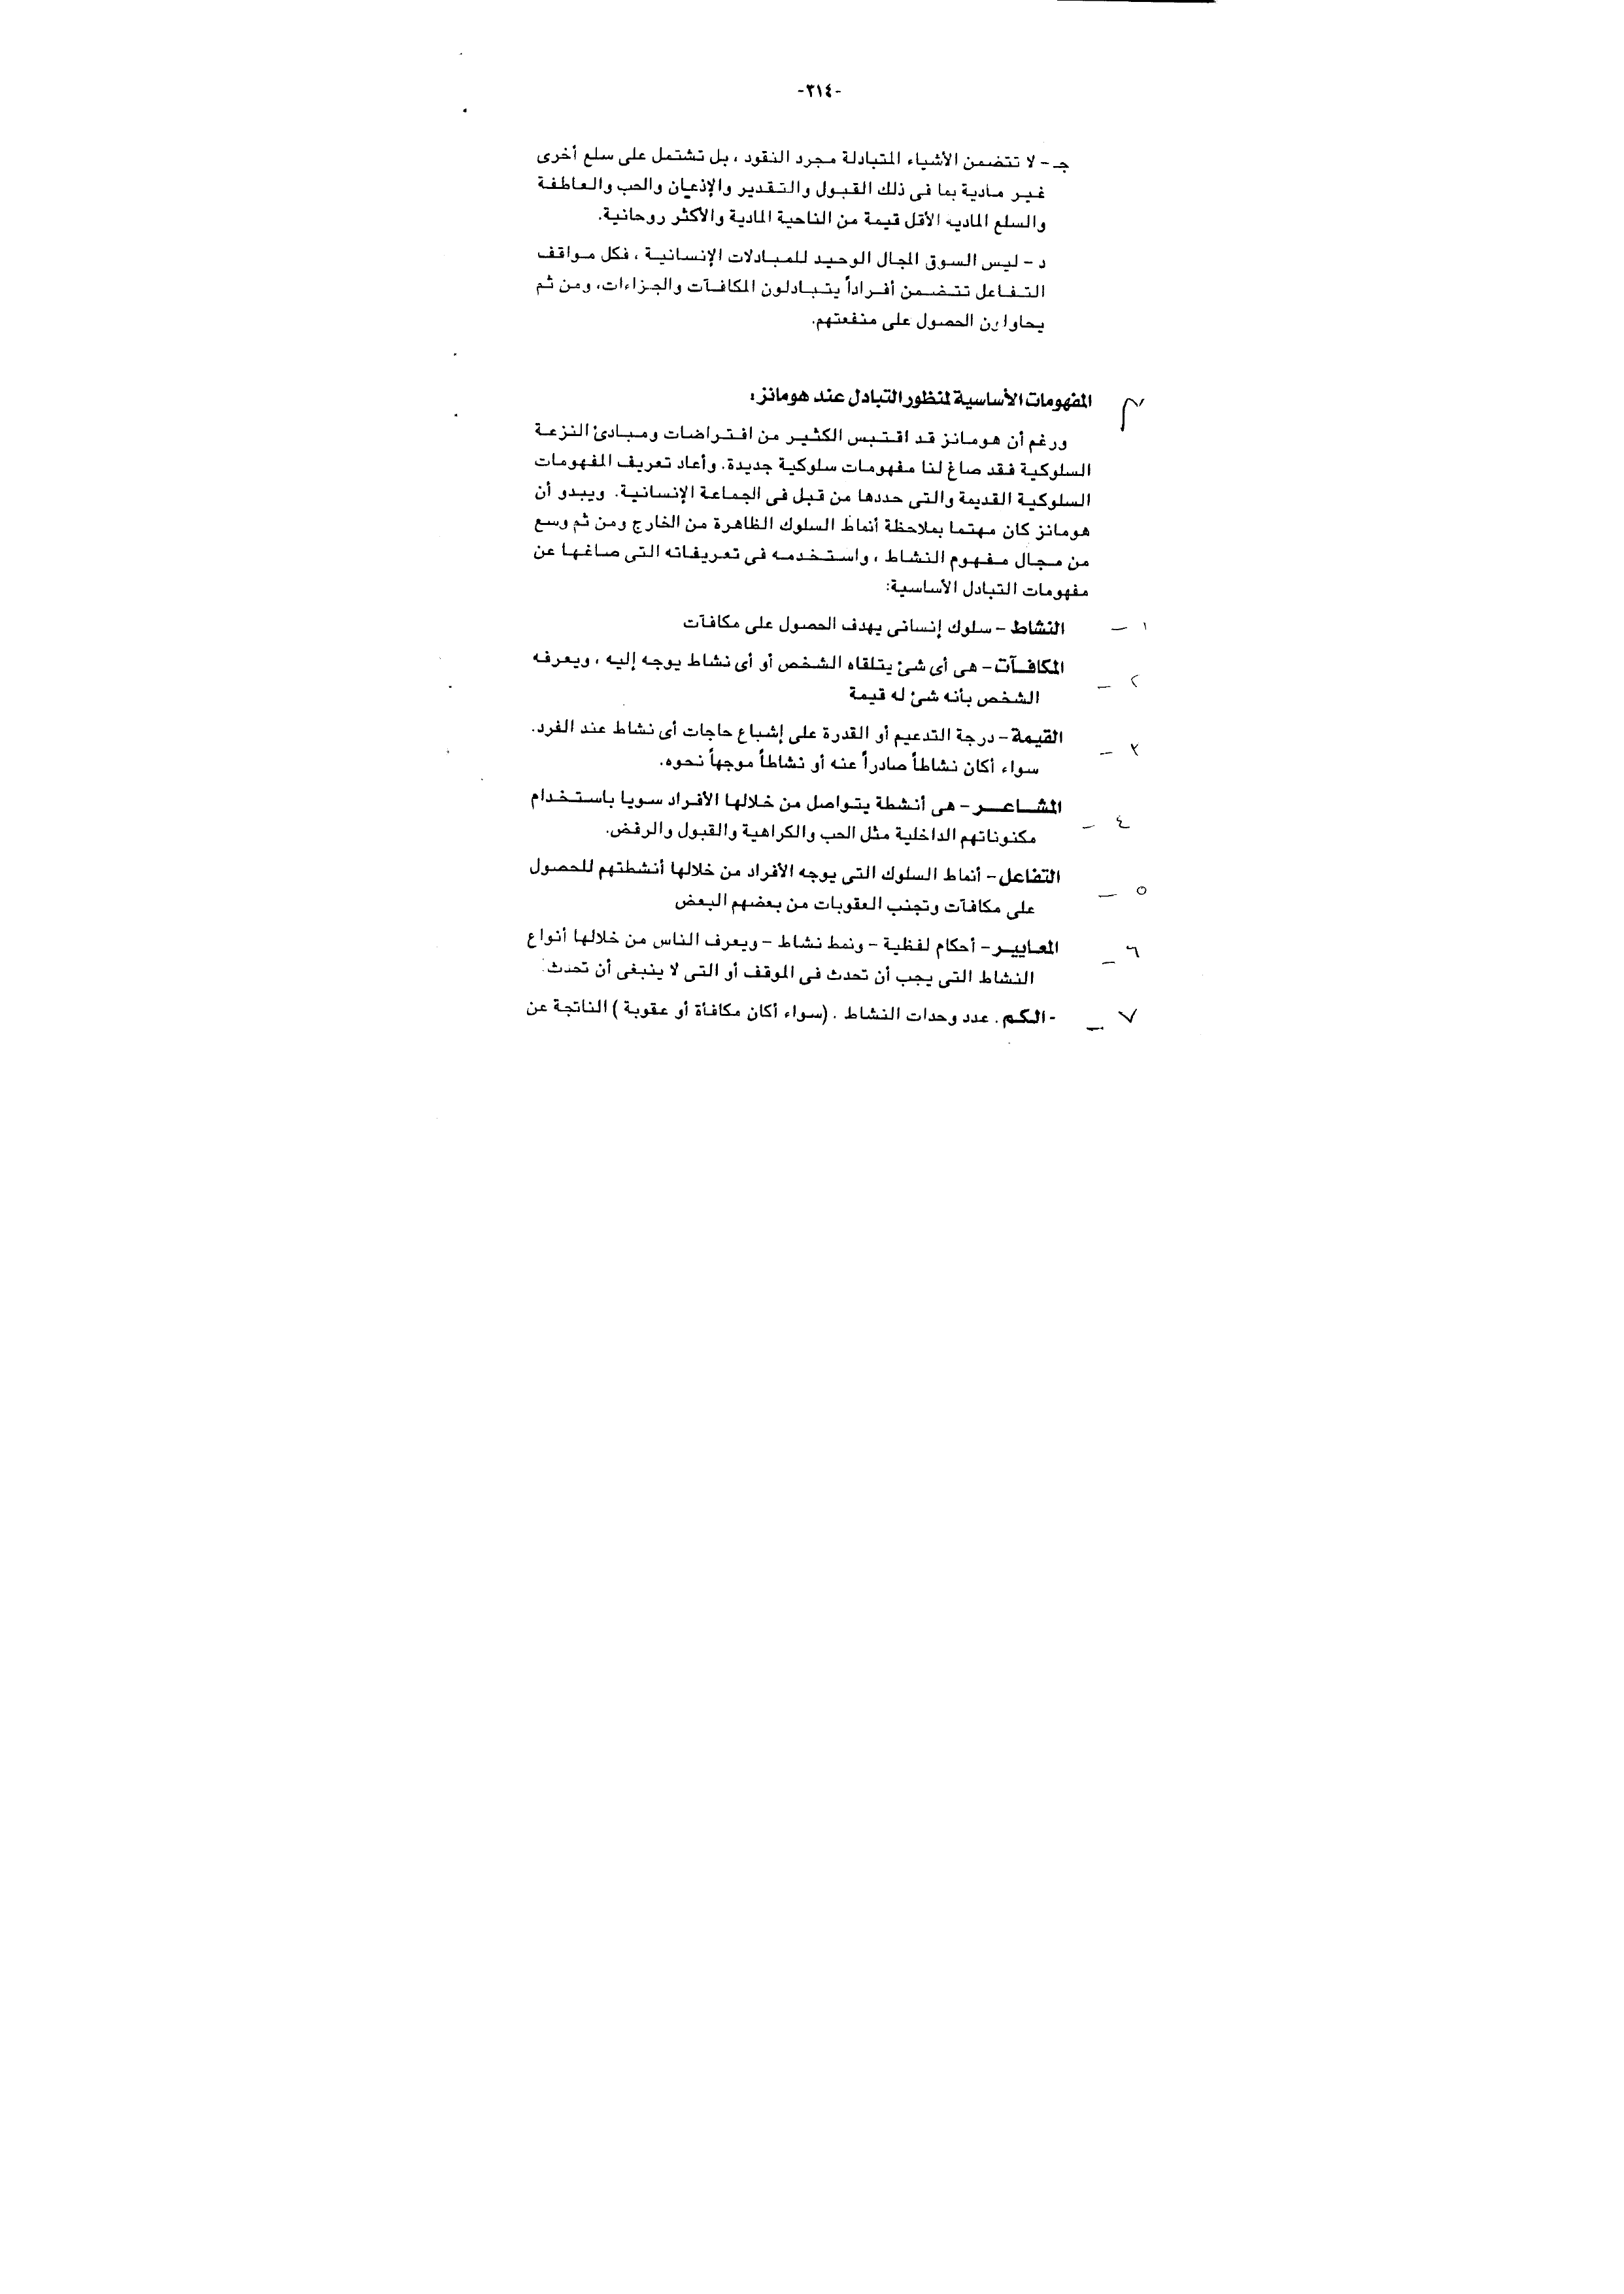 -٣١٤-
جـ - لا تتضمن الأشياء المتبادلة مجرد النقود ، بل تشتمل على سلع أخرى
غير مادية بما فى ذلك القبول والتقدير والإذعان والحب والعاطفة
والسلع الماديه الأقل قيمة من الناحية المادية والأكثر روحانية.
د - ليس السوق المجال الوحيد للمبادلات الإنسانية ، فكل مواقف
التفاعل تتضمن أفراداً يتبادلون المكافآت والجزاءات، ومن ثم
يحاولون الحصول على منفعتهم.
المفهومات الأساسية لمنظور التبادل عند هومانز:
ورغم أن هومانز قد اقتبس الكثير من افتراضات ومبادئ النزعة
السلوكية فقد صاغ لنا مفهومات سلوكية جديدة. وأعاد تعريف المفهومات
السلوكية القديمة والتى حددها من قبل فى الجماعة الإنسانية. ويبدو أن
هومانز كان مهتما بملاحظة أنماط السلوك الظاهرة من الخارج ومن ثم وسع
من مجال مفهوم النشاط ، واستخدمه فى تعريفاته التى صاغها عن
مفهومات التبادل الأساسية:
١ - النشاط - سلوك إنسانى يهدف الحصول على مكافآت
٢ - المكافآت - هى أى شئ يتلقاه الشخص أو أى نشاط يوجه إليه ، ويعرفه
الشخص بأنه شئ له قيمة
٣ - القيمة - درجة التدعيم أو القدرة على إشباع حاجات أى نشاط عند الفرد.
سواء أكان نشاطاً صادراً عنه أو نشاطاً موجهاً نحوه.
٤ - المشاعر - هى أنشطة يتواصل من خلالها الأفراد سويا باستخدام
مكنوناتهم الداخلية مثل الحب والكراهية والقبول والرفض.
٥ - التفاعل - أنماط السلوك التى يوجه الأفراد من خلالها أنشطتهم للحصول
على مكافآت وتجنب العقوبات من بعضهم البعض
٦ - المعايير - أحكام لفظية - ونمط نشاط - ويعرف الناس من خلالها أنواع
النشاط التى يجب أن تحدث فى الموقف أو التى لا ينبغى أن تحدث.
٧ - - الكم . عدد وحدات النشاط . (سواء أكان مكافأة أو عقوبة ) الناتجة عن